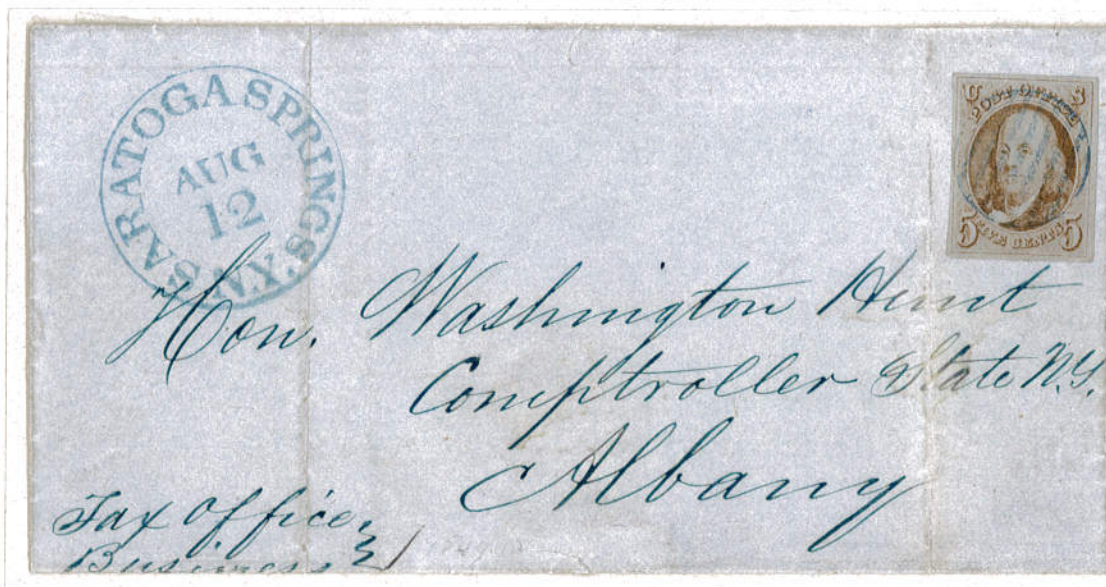 SARATOGA SPRINGS. N.Y.
AUG
12
U S
POST OFFICE
5 FIVE CENTS 5
Hon. Washington Hunt
Comptroller State N.Y.
Albany
Tax Office
Business